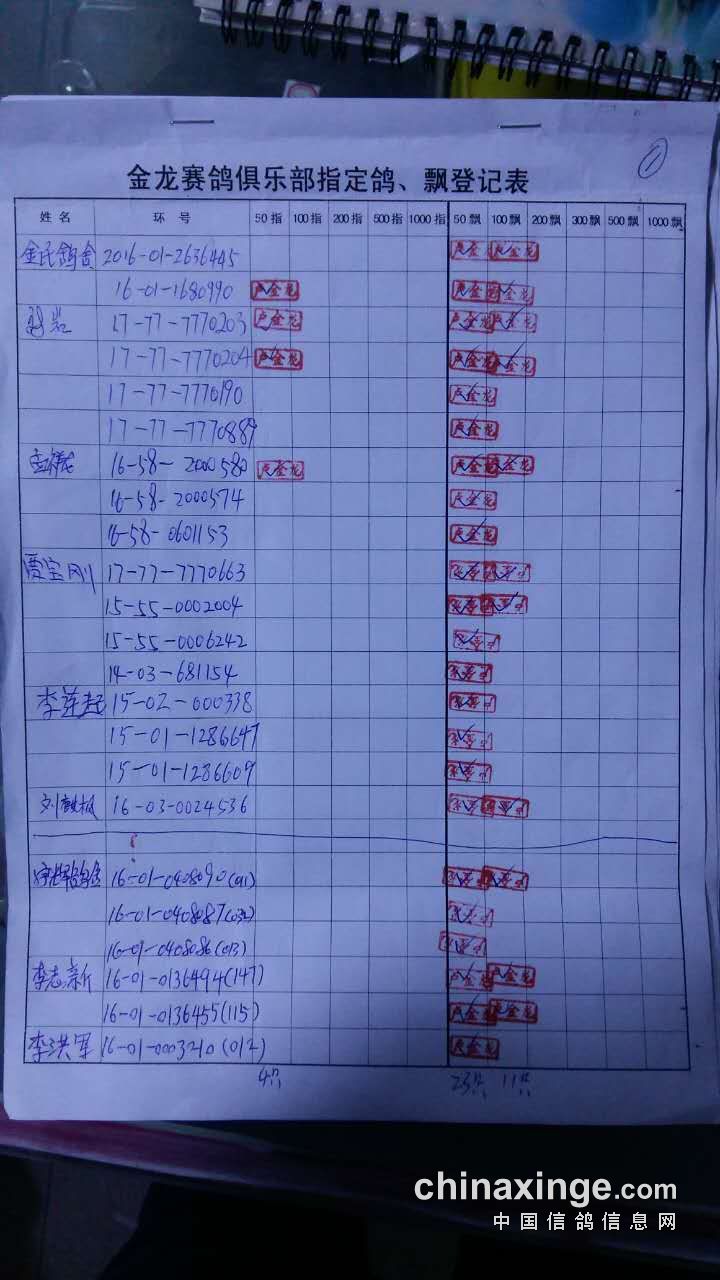 ①
金龙赛鸽俱乐部指定鸽、飘登记表
姓名 环号 50指 100指 200指 500指 1000指 50飘 100飘 200飘 300飘 500飘 1000飘
金民鸽舍 2016-01-2636445 卢金龙 卢金龙
16-01-1680990 卢金龙 卢金龙 卢金龙
17-77-7770203 卢金龙 卢金龙 卢金龙
17-77-7770204 卢金龙 卢金龙 卢金龙
17-77-7770190 卢金龙
17-77-7770889 卢金龙
16-58-2000580 卢金龙 卢金龙 卢金龙
16-58-2000574 卢金龙
16-58-0601153 卢金龙
贾宝刚 17-77-7770663
15-55-0002004
15-55-0006242
14-03-681154
李莲起 15-02-000338
15-01-1286647
15-01-1286609
16-03-0024536
16-01-0408090(091)
16-01-0408087(032)
16-01-0408086(013)
李志新 16-01-0136494(147) 卢金龙 卢金龙
16-01-0136455(115) 卢金龙 卢金龙
李洪军 16-01-0003210(012) 卢金龙
4只 23只 11只
chinaxinge.com
中国信鸽信息网